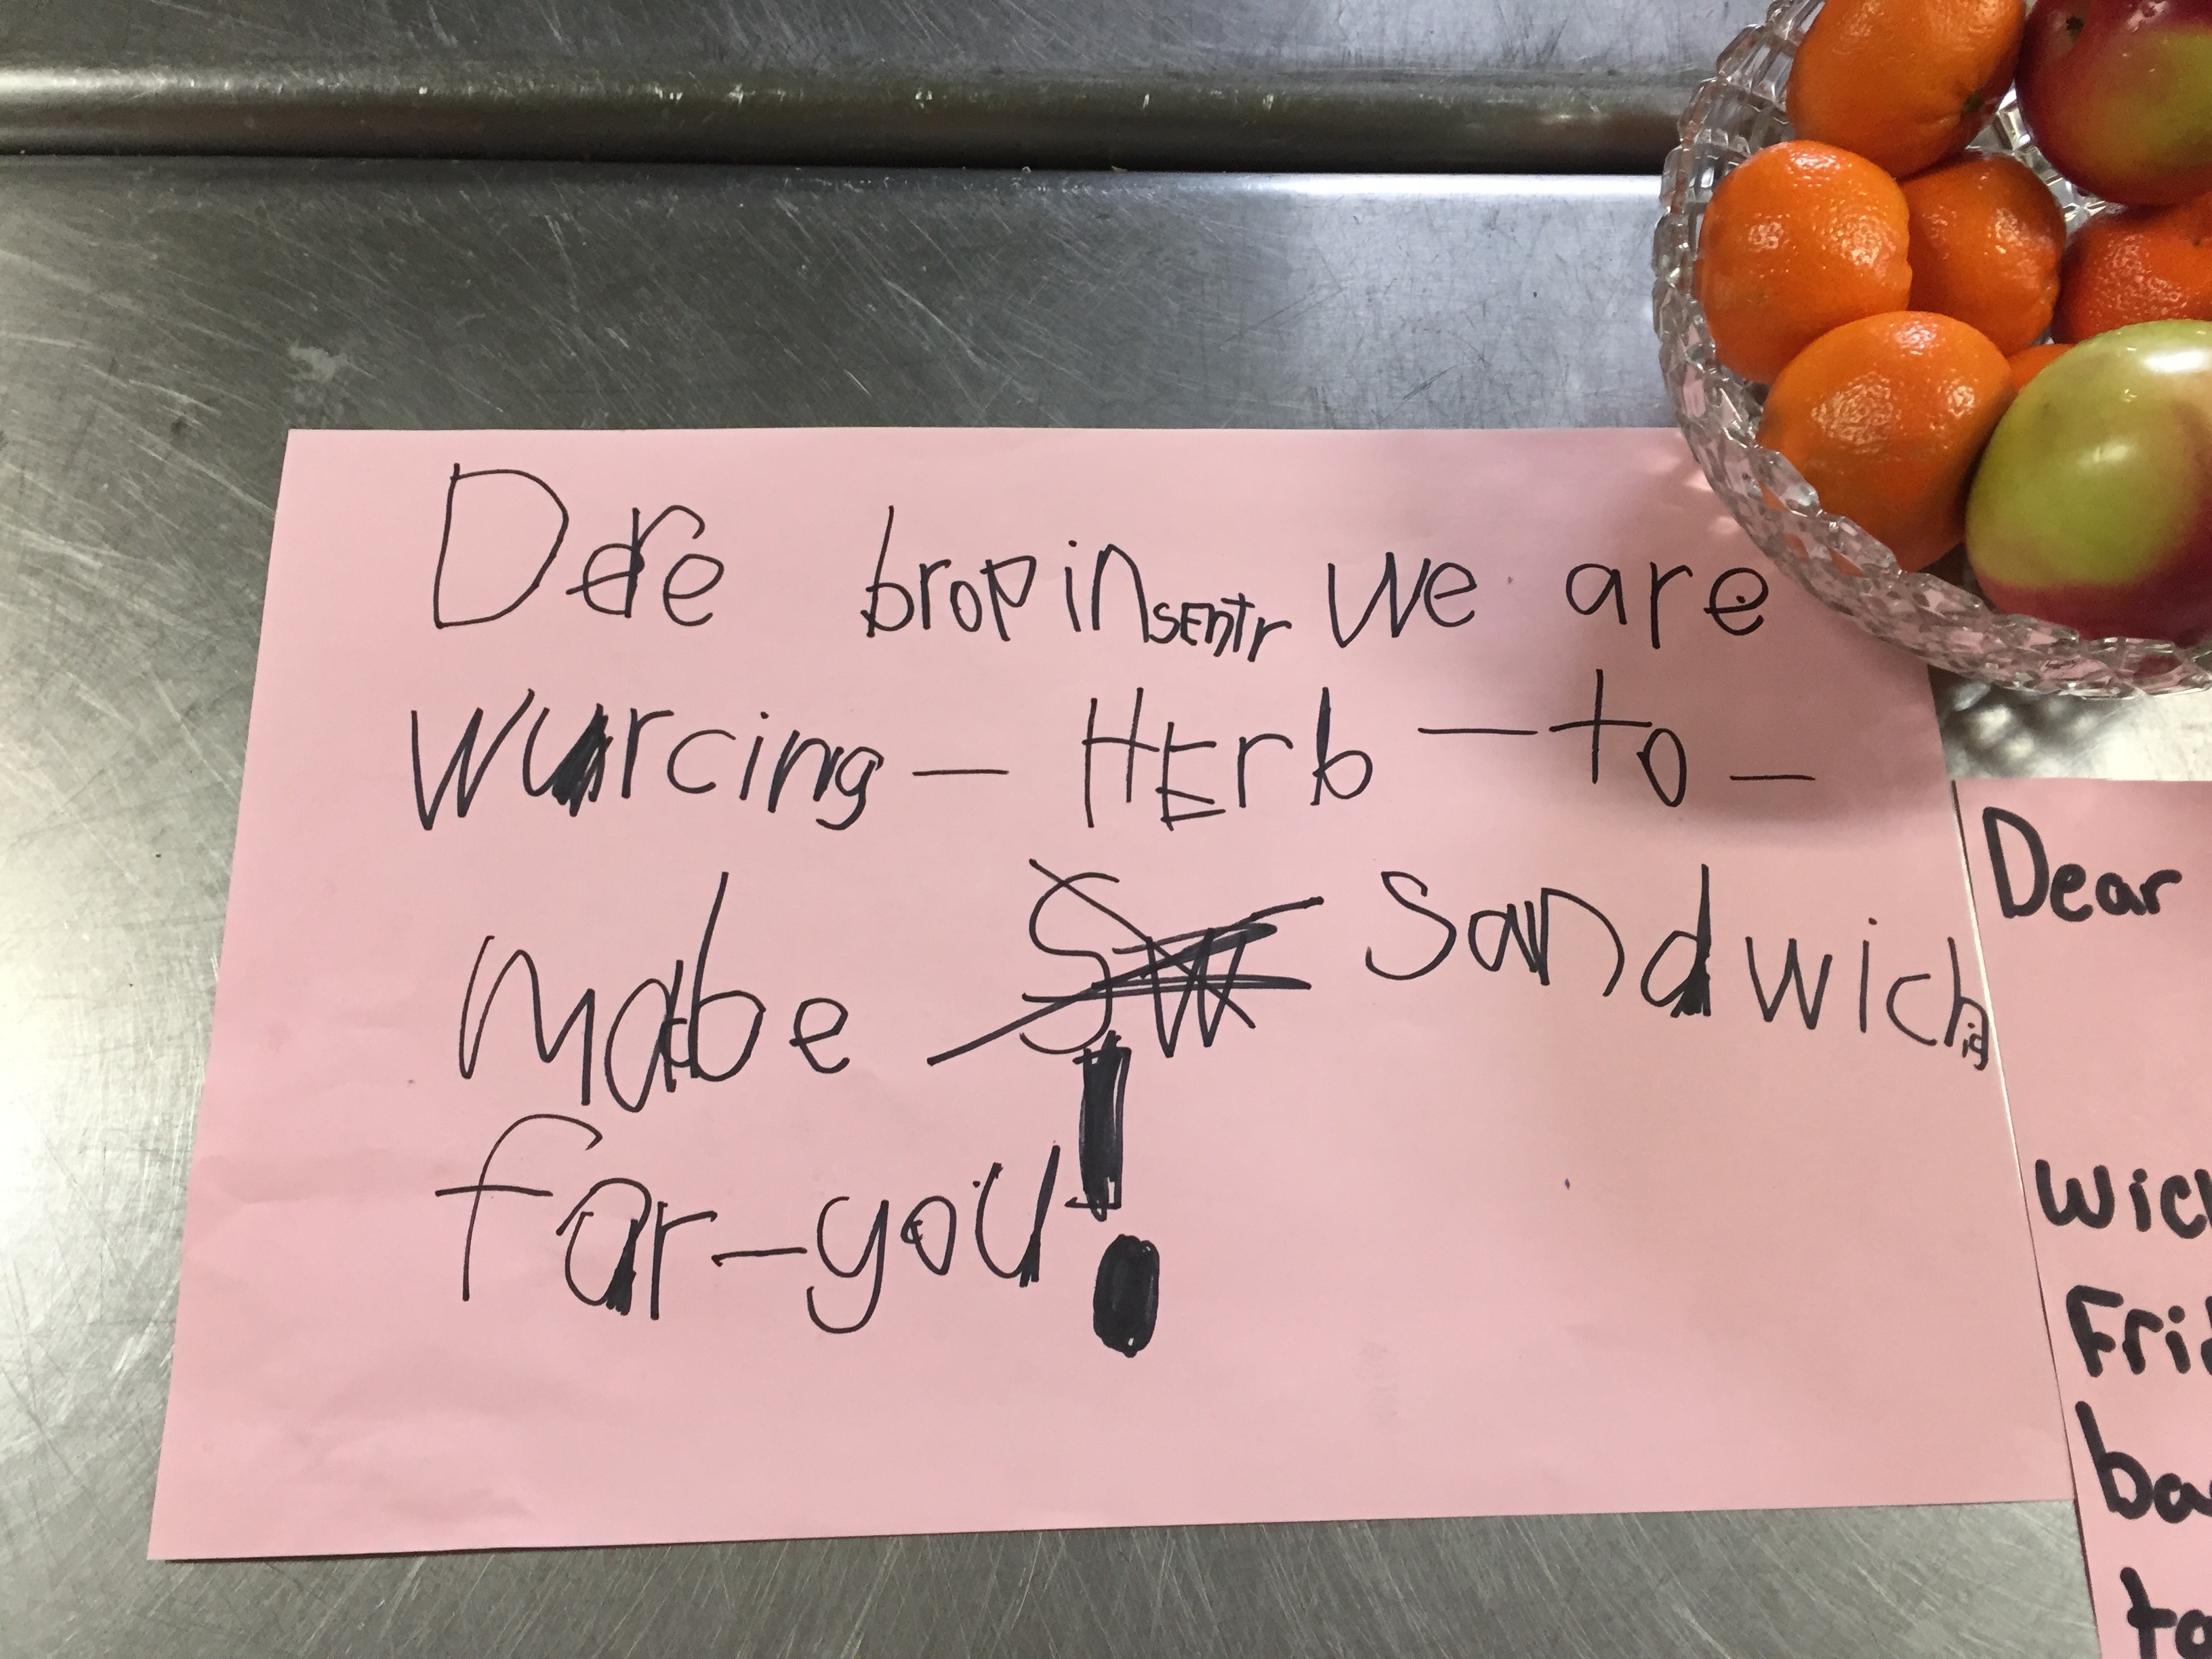 Dere bropinsentr we are
wurcing - HErb - to -
mabe sandwichis
for - you!
Dear
wich
Frid
ba
to